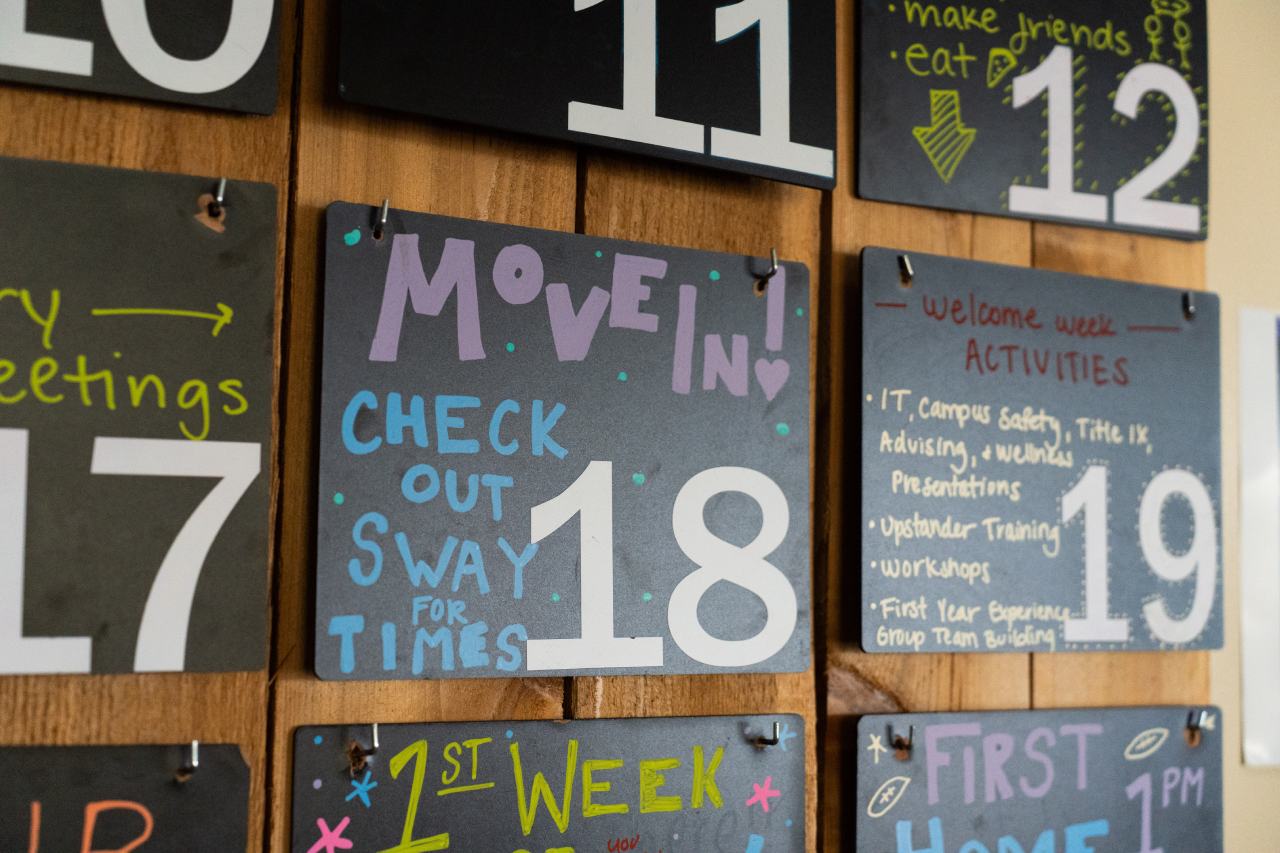 10
11
make friends
• eat
12
eetings
17
MOVE IN!
CHECK
OUT
SWAY
FOR
TIMES
18
— welcome week —
ACTIVITIES
• IT, Campus Safety, Title IX,
Advising, & Wellness
Presentations
• Upstander Training
• workshops
• First Year Experience
Group Team Building
19
1ST WEEK
you
FIRST
1PM
HOME